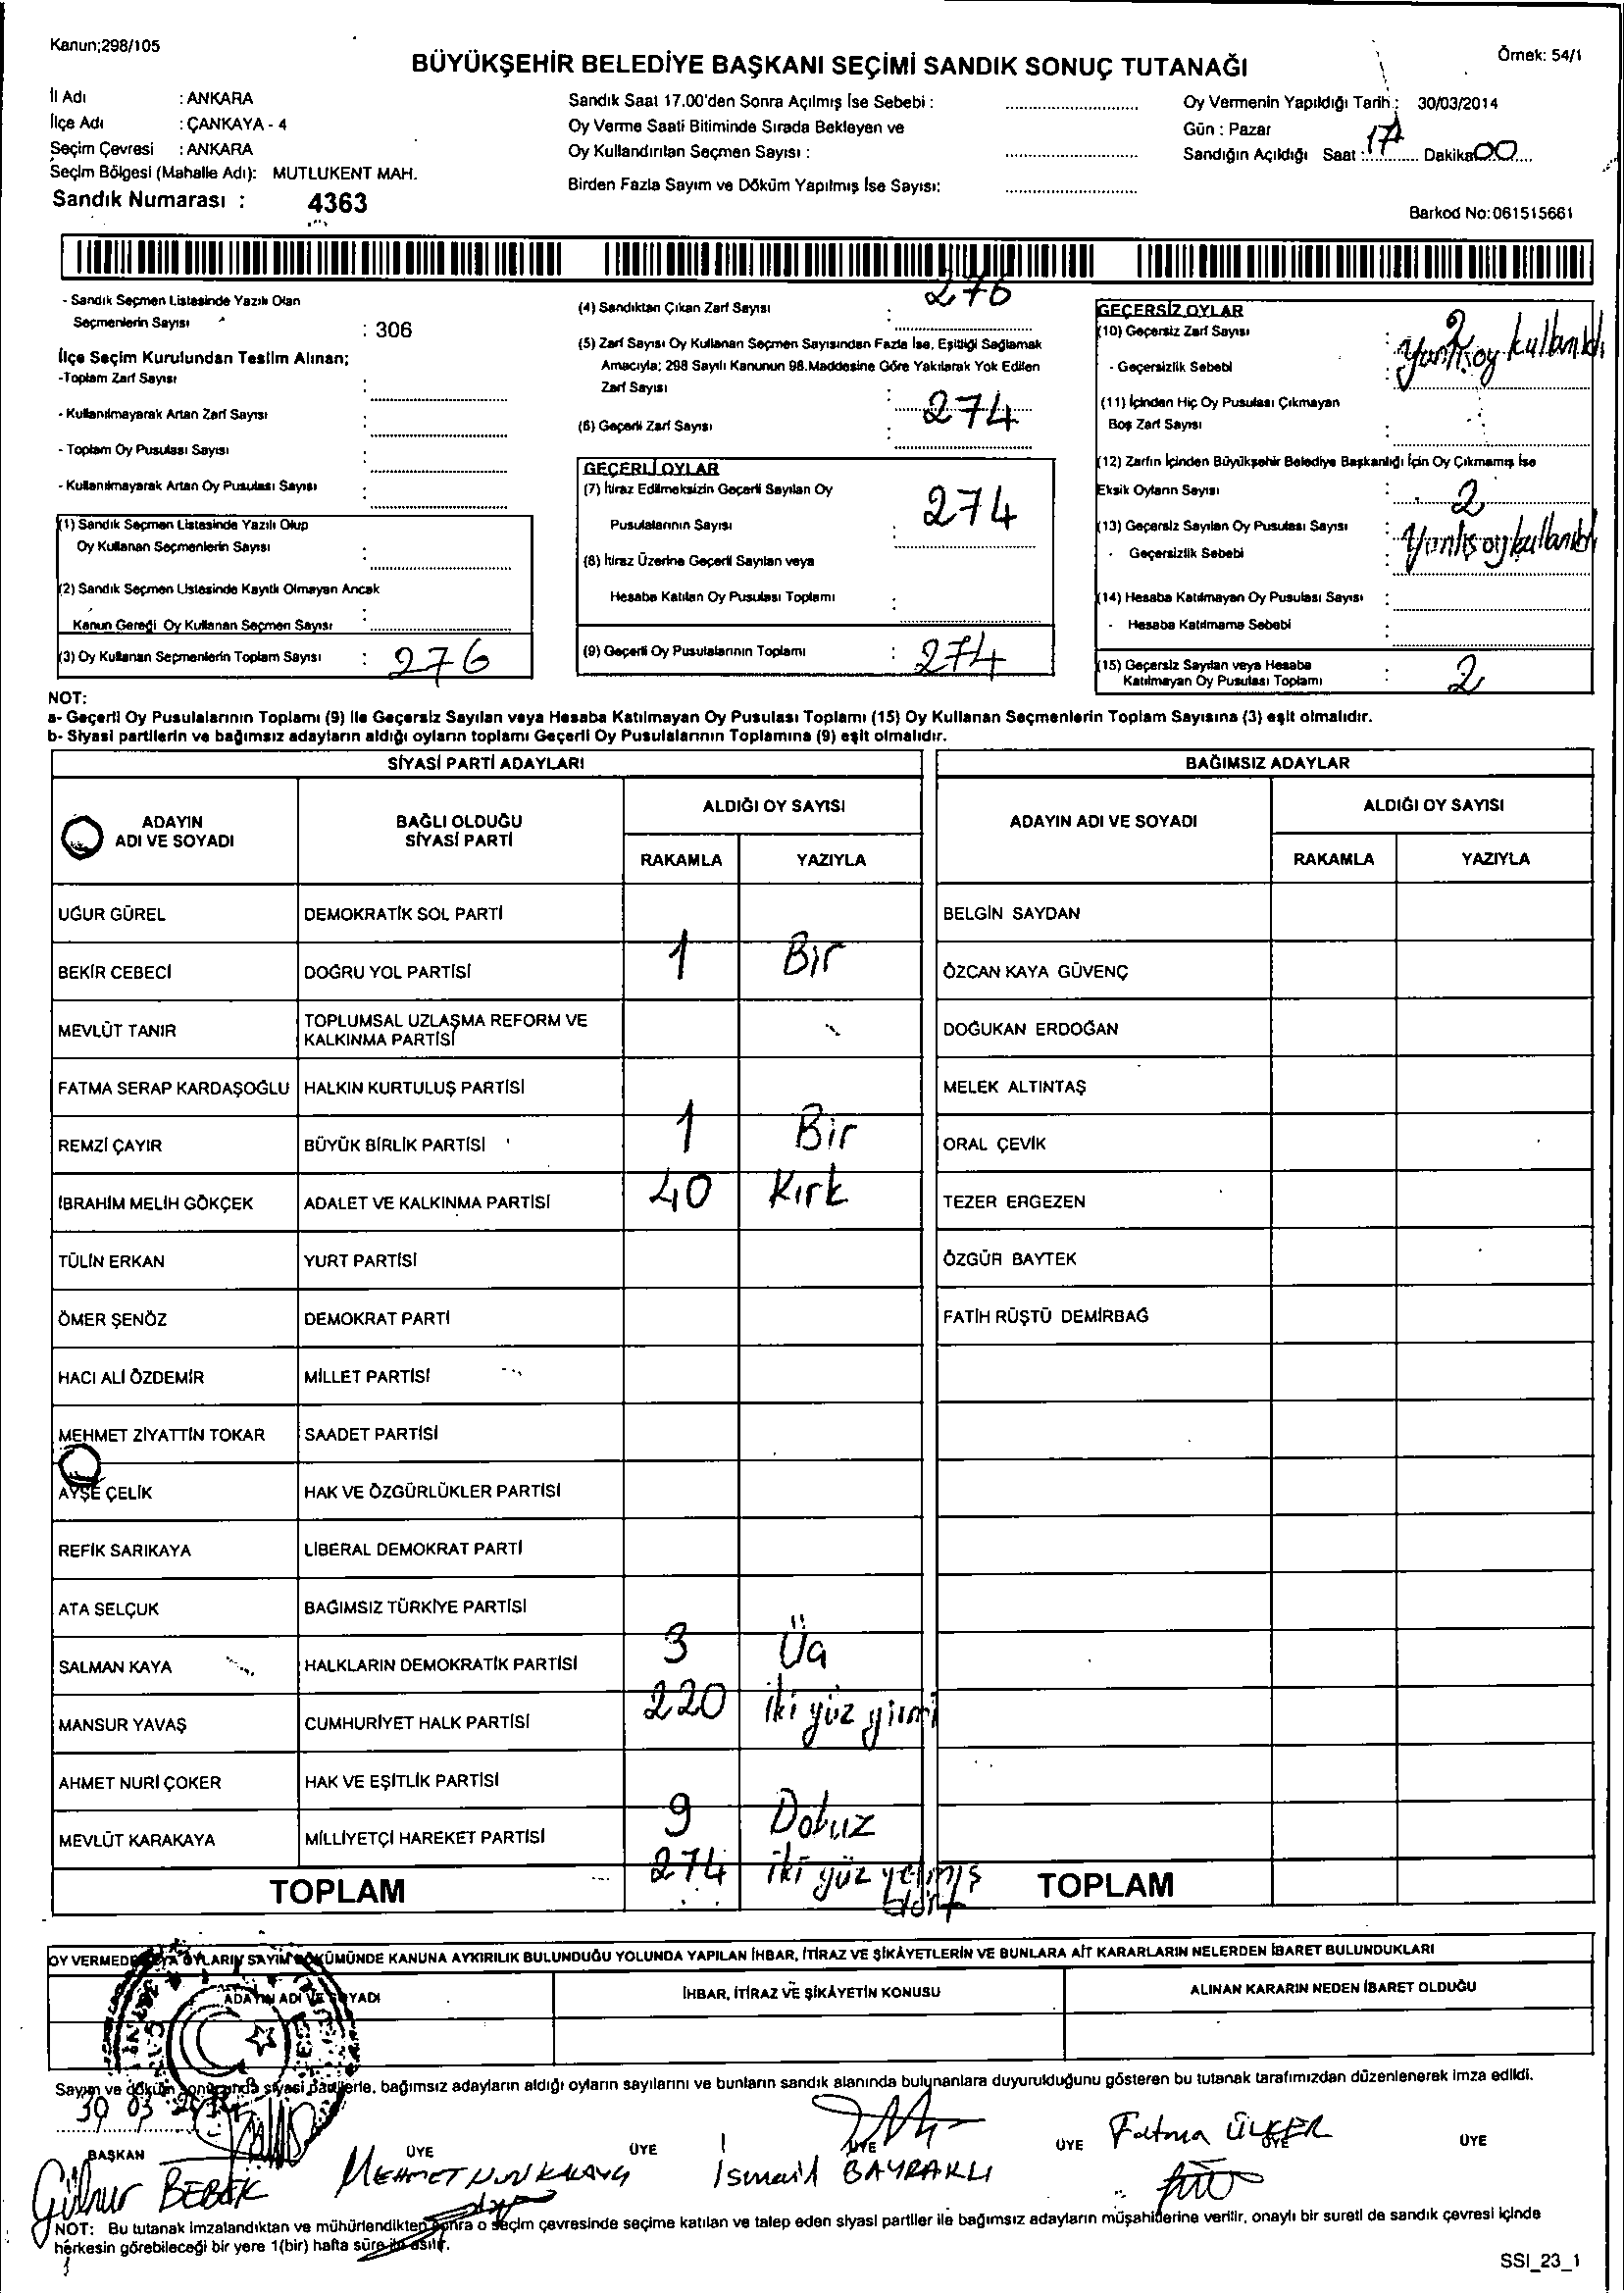 Kanun;298/105
Örnek: 54/1
BÜYÜKŞEHİR BELEDİYE BAŞKANI SEÇİMİ SANDIK SONUÇ TUTANAĞI
İl Adı : ANKARA
İlçe Adı : ÇANKAYA - 4
Seçim Çevresi : ANKARA
Seçim Bölgesi (Mahalle Adı): MUTLUKENT MAH.
Sandık Numarası : 4363
Sandık Saat 17.00'den Sonra Açılmış İse Sebebi :
Oy Verme Saati Bitiminde Sırada Bekleyen ve
Oy Kullandırılan Seçmen Sayısı :
Birden Fazla Sayım ve Döküm Yapılmış İse Sayısı:
Oy Vermenin Yapıldığı Tarih : 30/03/2014
Gün : Pazar
Sandığın Açıldığı Saat : 17 Dakika 00
Barkod No:061515661
- Sandık Seçmen Listesinde Yazılı Olan
Seçmenlerin Sayısı : 306
İlçe Seçim Kurulundan Teslim Alınan;
-Toplam Zarf Sayısı :
- Kullanılmayarak Artan Zarf Sayısı :
- Toplam Oy Pusulası Sayısı :
- Kullanılmayarak Artan Oy Pusulası Sayısı :
(1) Sandık Seçmen Listesinde Yazılı Olup
Oy Kullanan Seçmenlerin Sayısı :
(2) Sandık Seçmen Listesinde Kayıtlı Olmayan Ancak
Kanun Gereği Oy Kullanan Seçmen Sayısı :
(3) Oy Kullanan Seçmenlerin Toplam Sayısı : 276
(4) Sandıktan Çıkan Zarf Sayısı : 276
(5) Zarf Sayısı Oy Kullanan Seçmen Sayısından Fazla İse, Eşitliği Sağlamak
Amacıyla; 298 Sayılı Kanunun 98.Maddesine Göre Yakılarak Yok Edilen
Zarf Sayısı :
(6) Geçerli Zarf Sayısı : 274
GEÇERLİ OYLAR
(7) İtiraz Edilmeksizin Geçerli Sayılan Oy
Pusulalarının Sayısı : 274
(8) İtiraz Üzerine Geçerli Sayılan veya
Hesaba Katılan Oy Pusulası Toplamı :
(9) Geçerli Oy Pusulalarının Toplamı : 274
GEÇERSİZ OYLAR
(10) Geçersiz Zarf Sayısı : 2
- Geçersizlik Sebebi : Yanlış oy kullanıldı
(11) İçinden Hiç Oy Pusulası Çıkmayan
Boş Zarf Sayısı :
(12) Zarfın İçinden Büyükşehir Belediye Başkanlığı İçin Oy Çıkmamış İse
Eksik Oyların Sayısı :
(13) Geçersiz Sayılan Oy Pusulası Sayısı : 2
- Geçersizlik Sebebi : Yanlış oy kullanıldı
(14) Hesaba Katılmayan Oy Pusulası Sayısı :
- Hesaba Katılmama Sebebi :
(15) Geçersiz Sayılan veya Hesaba
Katılmayan Oy Pusulası Toplamı : 2
NOT:
a- Geçerli Oy Pusulalarının Toplamı (9) ile Geçersiz Sayılan veya Hesaba Katılmayan Oy Pusulası Toplamı (15) Oy Kullanan Seçmenlerin Toplam Sayısına (3) eşit olmalıdır.
b- Siyasi partilerin ve bağımsız adayların aldığı oyların toplamı Geçerli Oy Pusulalarının Toplamına (9) eşit olmalıdır.
SİYASİ PARTİ ADAYLARI
ADAYIN ADI VE SOYADI BAĞLI OLDUĞU SİYASİ PARTİ ALDIĞI OY SAYISI
RAKAMLA YAZIYLA
UĞUR GÜREL DEMOKRATİK SOL PARTİ
BEKİR CEBECİ DOĞRU YOL PARTİSİ 1 Bir
MEVLÜT TANIR TOPLUMSAL UZLAŞMA REFORM VE KALKINMA PARTİSİ
FATMA SERAP KARDAŞOĞLU HALKIN KURTULUŞ PARTİSİ
REMZİ ÇAYIR BÜYÜK BİRLİK PARTİSİ 1 Bir
İBRAHİM MELİH GÖKÇEK ADALET VE KALKINMA PARTİSİ 40 Kırk
TÜLİN ERKAN YURT PARTİSİ
ÖMER ŞENÖZ DEMOKRAT PARTİ
HACI ALİ ÖZDEMİR MİLLET PARTİSİ
MEHMET ZİYATTİN TOKAR SAADET PARTİSİ
AYŞE ÇELİK HAK VE ÖZGÜRLÜKLER PARTİSİ
REFİK SARIKAYA LİBERAL DEMOKRAT PARTİ
ATA SELÇUK BAĞIMSIZ TÜRKİYE PARTİSİ
SALMAN KAYA HALKLARIN DEMOKRATİK PARTİSİ 3 Üç
MANSUR YAVAŞ CUMHURİYET HALK PARTİSİ 220 iki yüz yirmi
AHMET NURİ ÇOKER HAK VE EŞİTLİK PARTİSİ
MEVLÜT KARAKAYA MİLLİYETÇİ HAREKET PARTİSİ 9 Dokuz
TOPLAM 274 iki yüz yetmiş dört
BAĞIMSIZ ADAYLAR
ADAYIN ADI VE SOYADI ALDIĞI OY SAYISI
RAKAMLA YAZIYLA
BELGİN SAYDAN
ÖZCAN KAYA GÜVENÇ
DOĞUKAN ERDOĞAN
MELEK ALTINTAŞ
ORAL ÇEVİK
TEZER ERGEZEN
ÖZGÜR BAYTEK
FATİH RÜŞTÜ DEMİRBAĞ
TOPLAM
OY VERMEDE VEYA OYLARIN SAYIM DÖKÜMÜNDE KANUNA AYKIRILIK BULUNDUĞU YOLUNDA YAPILAN İHBAR, İTİRAZ VE ŞİKÂYETLERİN VE BUNLARA AİT KARARLARIN NELERDEN İBARET BULUNDUKLARI
ADAYIN ADI VE SOYADI İHBAR, İTİRAZ VE ŞİKÂYETİN KONUSU ALINAN KARARIN NEDEN İBARET OLDUĞU
Sayım ve döküm sonucunda siyasi partilerle, bağımsız adayların aldığı oyların sayılarını ve bunların sandık alanında bulunanlara duyurulduğunu gösteren bu tutanak tarafımızdan düzenlenerek imza edildi.
30 03 2014
BAŞKAN ÜYE ÜYE ÜYE ÜYE ÜYE ÜYE
Fatma ÜLKER
Gülnur BEBEK MEHMET İsmail BAYRAKLI
NOT: Bu tutanak imzalandıktan ve mühürlendikten sonra o seçim çevresinde seçime katılan ve talep eden siyasi partiler ile bağımsız adayların müşahitlerine verilir, onaylı bir sureti de sandık çevresi içinde
herkesin görebileceği bir yere 1(bir) hafta süre ile asılır.
SSI_23_1